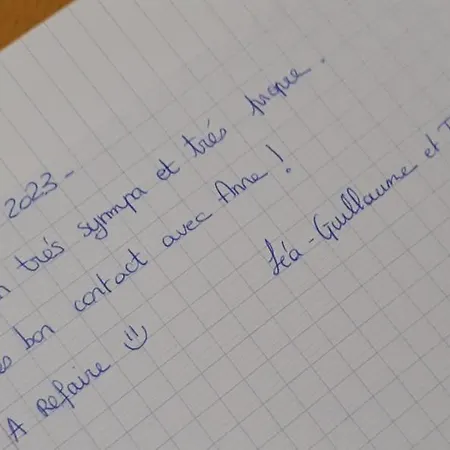 2023-
très sympa et très pique.
bon contact avec Anne!
A Refaire
Léa - Guillaume et